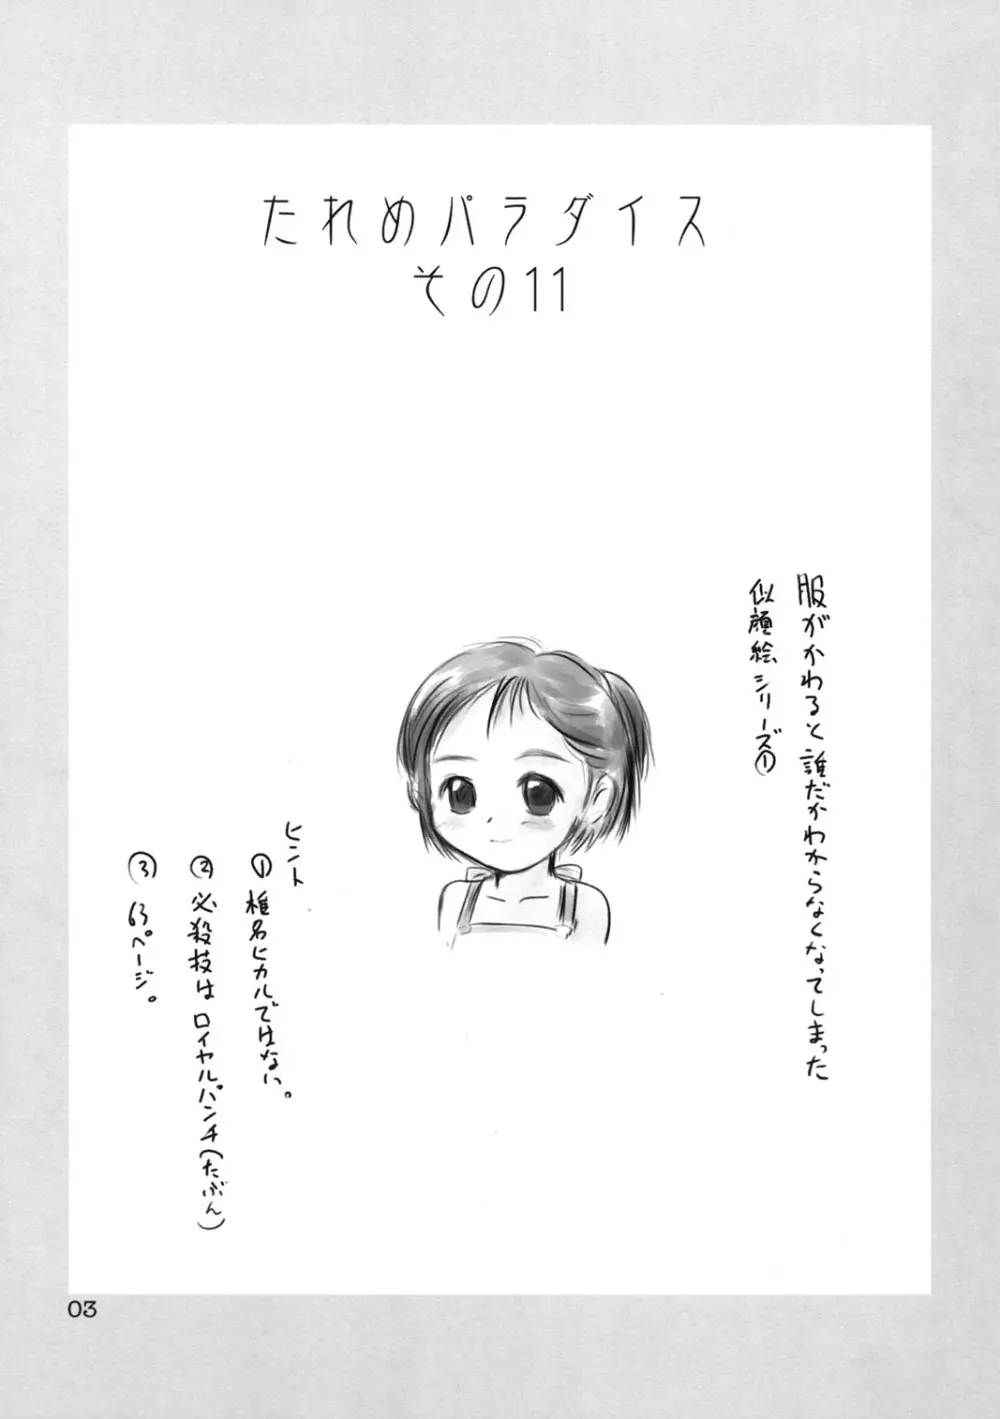 たれめパラダイス
その11
服がかわると誰だかわからなくなってしまった
似顔絵シリーズ①
ヒント
① 椎名ヒカルではない。
② 必殺技はロイヤルパンチ(たぶん)
③ 63ページ。
03